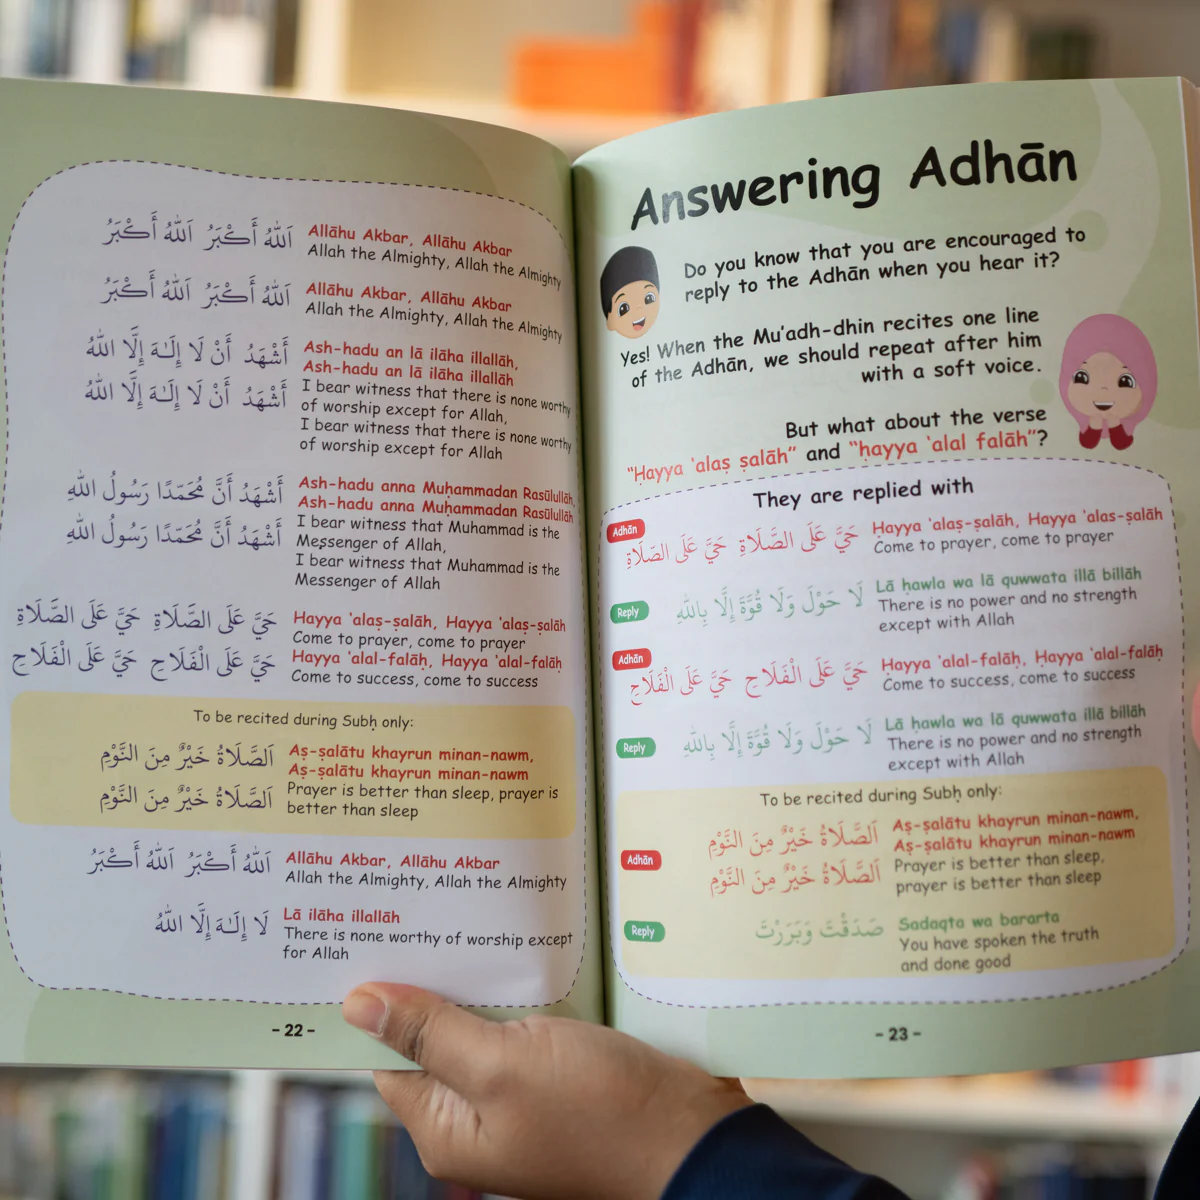 اَللّٰهُ أَكْبَرُ اَللّٰهُ أَكْبَرُ
Allāhu Akbar, Allāhu Akbar
Allah the Almighty, Allah the Almighty
اَللّٰهُ أَكْبَرُ اَللّٰهُ أَكْبَرُ
Allāhu Akbar, Allāhu Akbar
Allah the Almighty, Allah the Almighty
أَشْهَدُ أَنْ لَا إِلَـٰهَ إِلَّا اللّٰهُ
أَشْهَدُ أَنْ لَا إِلَـٰهَ إِلَّا اللّٰهُ
Ash-hadu an lā ilāha illallāh,
Ash-hadu an lā ilāha illallāh
I bear witness that there is none worthy
of worship except for Allah,
I bear witness that there is none worthy
of worship except for Allah
أَشْهَدُ أَنَّ مُحَمَّدًا رَسُولُ اللّٰهِ
أَشْهَدُ أَنَّ مُحَمَّدًا رَسُولُ اللّٰهِ
Ash-hadu anna Muḥammadan Rasūlullāh,
Ash-hadu anna Muḥammadan Rasūlullāh
I bear witness that Muhammad is the
Messenger of Allah,
I bear witness that Muhammad is the
Messenger of Allah
حَيَّ عَلَى الصَّلَاةِ حَيَّ عَلَى الصَّلَاةِ
Hayya 'alaṣ-ṣalāh, Hayya 'alaṣ-ṣalāh
Come to prayer, come to prayer
حَيَّ عَلَى الْفَلَاحِ حَيَّ عَلَى الْفَلَاحِ
Hayya 'alal-falāḥ, Hayya 'alal-falāḥ
Come to success, come to success
To be recited during Subḥ only:
اَلصَّلَاةُ خَيْرٌ مِنَ النَّوْمِ
اَلصَّلَاةُ خَيْرٌ مِنَ النَّوْمِ
Aṣ-ṣalātu khayrun minan-nawm,
Aṣ-ṣalātu khayrun minan-nawm
Prayer is better than sleep, prayer is
better than sleep
اَللّٰهُ أَكْبَرُ اَللّٰهُ أَكْبَرُ
Allāhu Akbar, Allāhu Akbar
Allah the Almighty, Allah the Almighty
لَا إِلَـٰهَ إِلَّا اللّٰهُ
Lā ilāha illallāh
There is none worthy of worship except
for Allah
- 22 -
Answering Adhān
Do you know that you are encouraged to
reply to the Adhān when you hear it?
Yes! When the Mu'adh-dhin recites one line
of the Adhān, we should repeat after him
with a soft voice.
But what about the verse
"Ḥayya 'alaṣ ṣalāh" and "ḥayya 'alal falāḥ"?
They are replied with
Adhān
حَيَّ عَلَى الصَّلَاةِ حَيَّ عَلَى الصَّلَاةِ
Ḥayya 'alaṣ-ṣalāh, Hayya 'alas-ṣalāh
Come to prayer, come to prayer
Reply
لَا حَوْلَ وَلَا قُوَّةَ إِلَّا بِاللّٰهِ
Lā ḥawla wa lā quwwata illā billāh
There is no power and no strength
except with Allah
Adhān
حَيَّ عَلَى الْفَلَاحِ حَيَّ عَلَى الْفَلَاحِ
Ḥayya 'alal-falāḥ, Ḥayya 'alal-falāḥ
Come to success, come to success
Reply
لَا حَوْلَ وَلَا قُوَّةَ إِلَّا بِاللّٰهِ
Lā ḥawla wa lā quwwata illā billāh
There is no power and no strength
except with Allah
To be recited during Subḥ only:
Adhān
اَلصَّلَاةُ خَيْرٌ مِنَ النَّوْمِ
اَلصَّلَاةُ خَيْرٌ مِنَ النَّوْمِ
Aṣ-ṣalātu khayrun minan-nawm,
Aṣ-ṣalātu khayrun minan-nawm
Prayer is better than sleep,
prayer is better than sleep
Reply
صَدَقْتَ وَبَرَرْتَ
Sadaqta wa bararta
You have spoken the truth
and done good
- 23 -